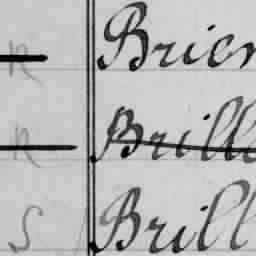 n Brier
n Brill
S Brill